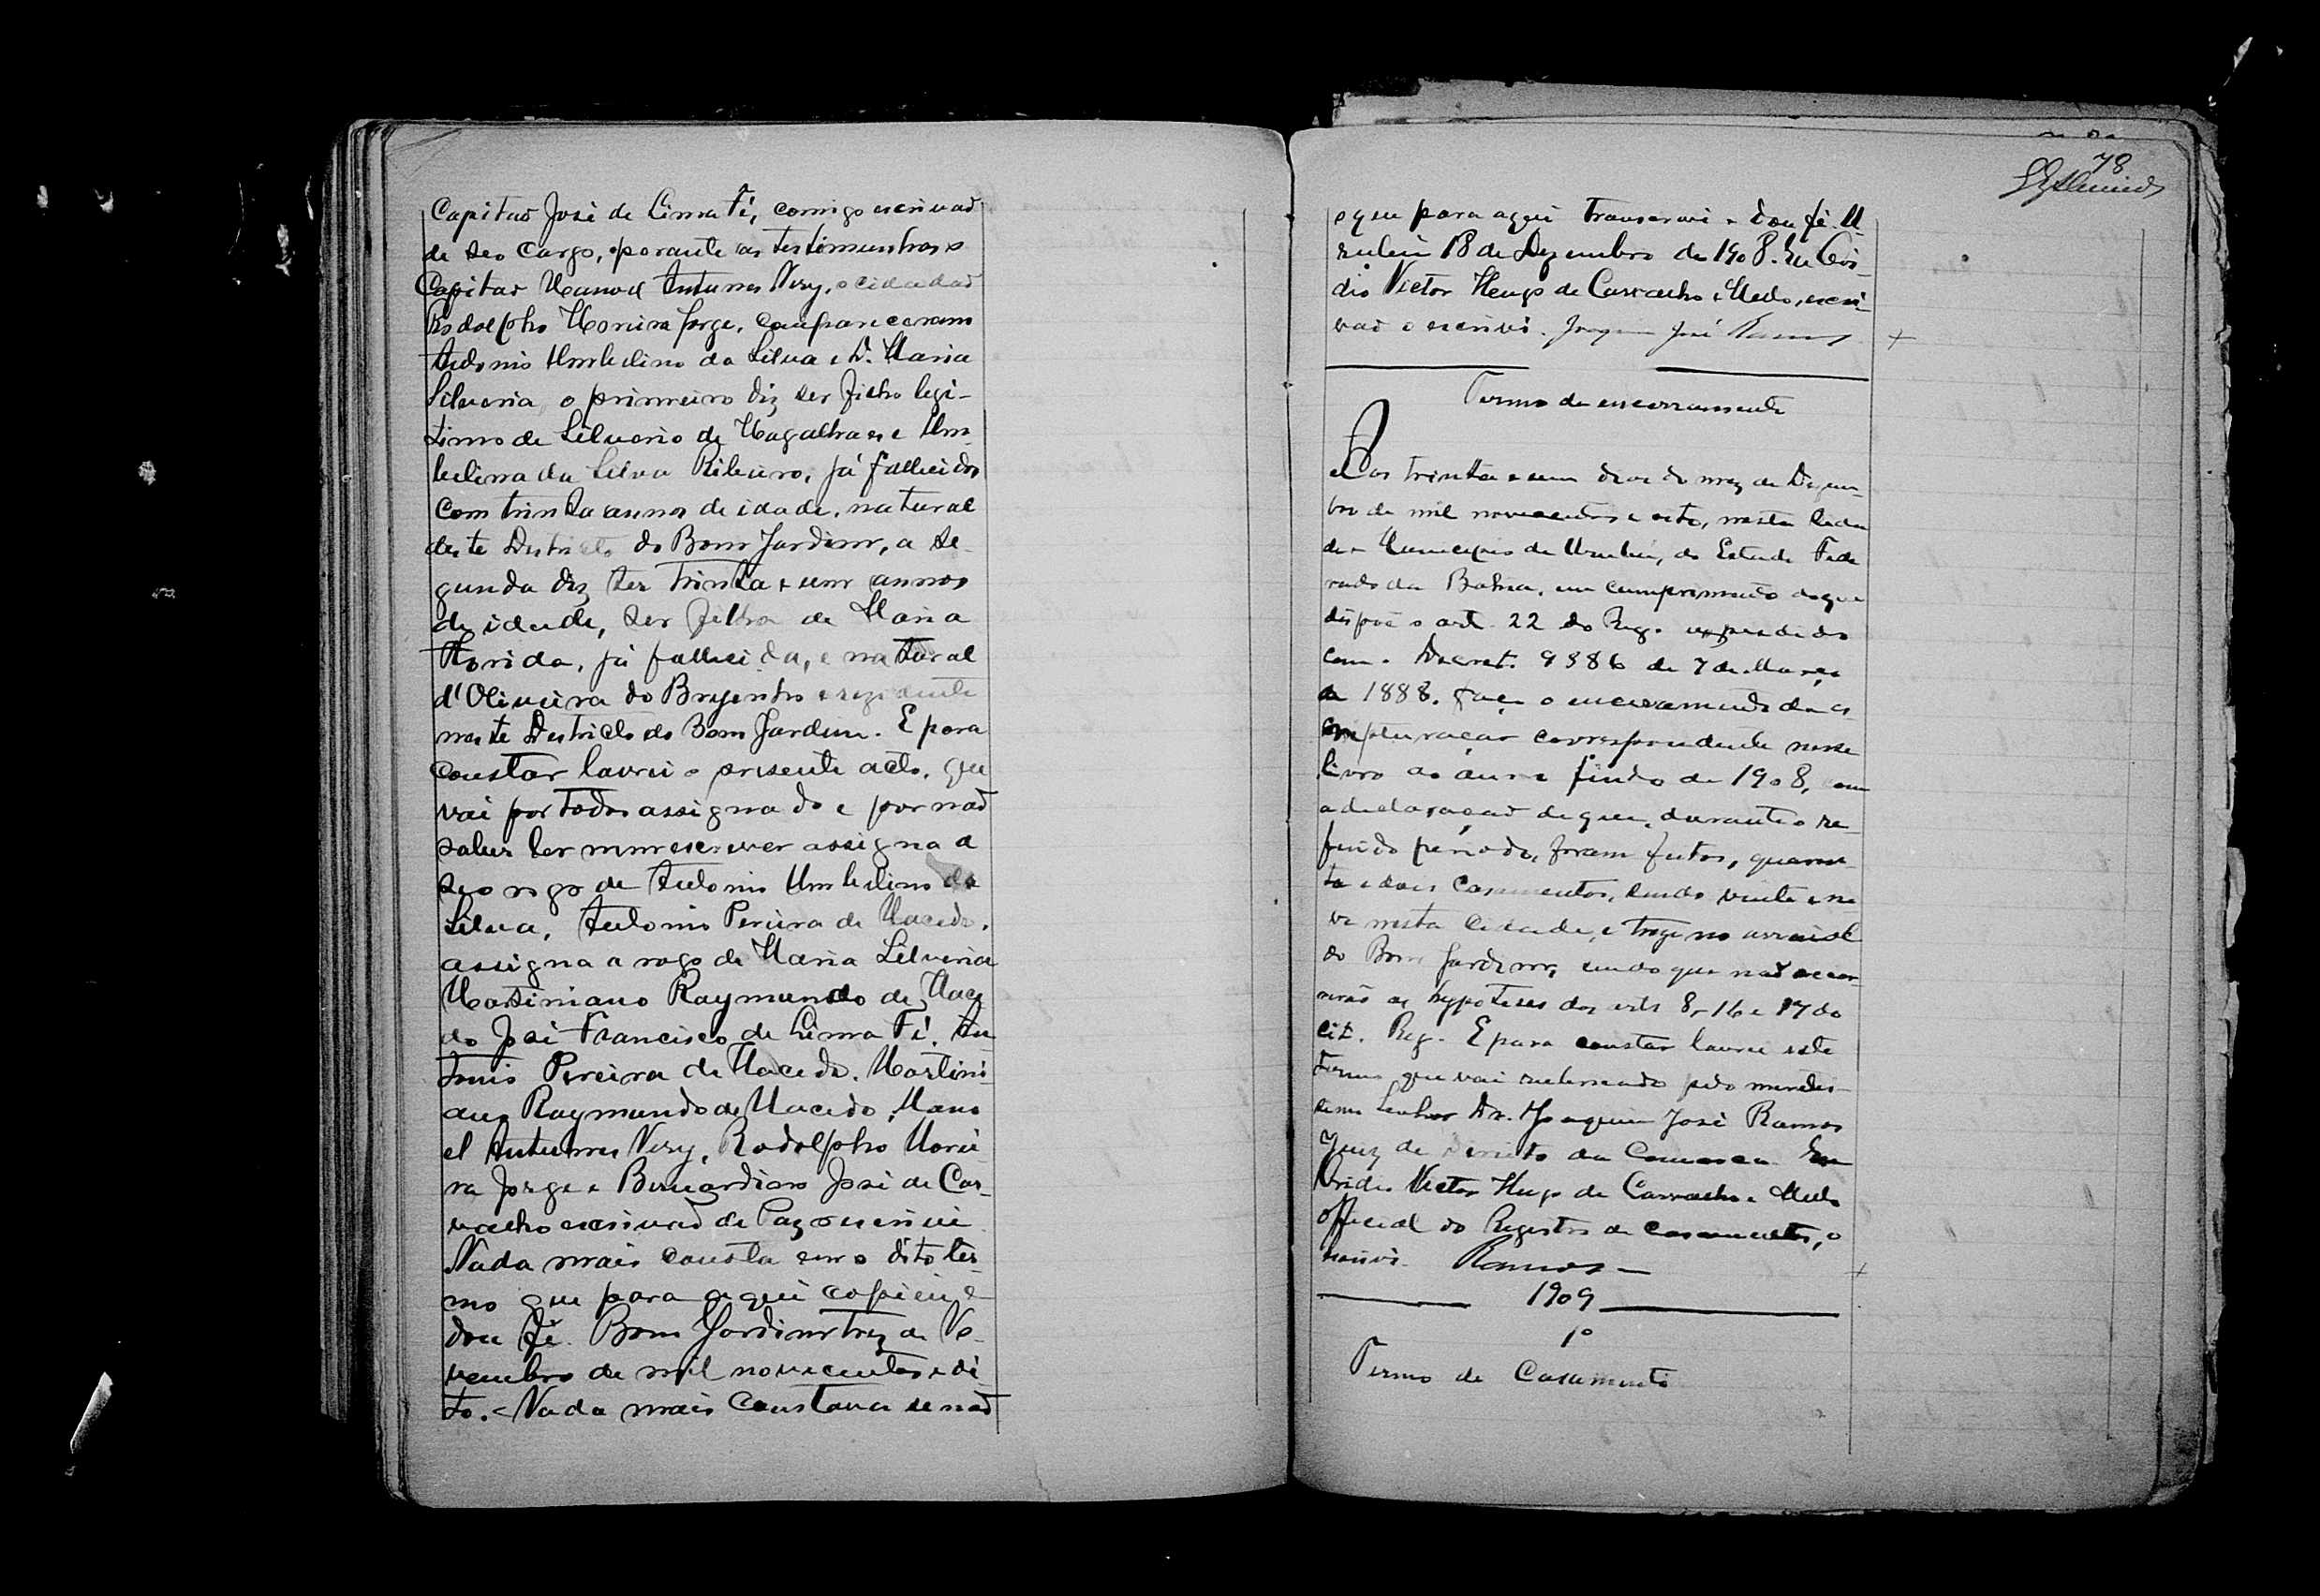 Capitao José de Lima Fé, comigo escrivaõ
de seo cargo, perante as testimunhas o
Capitaõ Manoel Antunes Nery, o cidadaõ
Rodolpho Moreira Jorge, compareceram
Antonio Umbelino da Silva e D. Maria
Silveria, o primeiro diz ser filho legi-
timo de Silverio de Magalhaes e Um-
belina da Silva Ribeiro, já fallecidos
com trinta annos de idade, natural
deste Districto do Bom Jardim, a se-
gunda diz ter trinta e um annos
de idade, ser filha de Maria
Florida, já fallecida, e natural
d'Oliveira do Brejinho e rezidente
neste Districto do Bom Jardim. E para
constar lavrei o presente acto, que
vai por todos assignado e por naõ
saber ler nem escrever assigna a
seo rogo de Antonio Umbelino da
Silva, Antonio Pereira de Macedo,
assigna a rogo de Maria Silveria
Martiniano Raymundo de Mace
do José Francisco de Lima Fé. An-
tonio Pereira de Macedo. Martini-
ano Raymundo de Macedo, Mano
el Antunes Nery, Rodolpho Morei-
ra Jorge e Bernardino José de Car-
valho escrivaõ de Paz o escrivi
Nada mais consta em o dito ter-
mo que para aqui copiei e
dou fé. Bom Jardim trez de No-
vembro de mil novecentos e oi-
to. Nada mais constava se naõ
78
o que para aqui transcrevi e dou fé. U-
rubú 18 de Dezembro de 1908. Eu
Victor Hugo de Carvalho e Mello, escri-
vaõ o escrivi. Joaquim José Ramos
Termo de encerramento
Aos trinta e um dias do mez de Dezem-
bro de mil novecentos e oito, nesta Cida
de e Municipio de Urubú, do Estado Fede
rado da Bahia, em cumprimento do que
dispoe o art. 22 do Reg. expedido
com o Decret. 9886 de 7 de Março
de 1888. faço o encerramento da es-
cripturaçaõ correspondente nesse
livro ao anno findo de 1908, com
a declaraçaõ de que, durante o re-
ferido periodo, foram feitos, quaren-
ta e dois casamentos, sendo vinte e no
ve nesta Cidade, e treze no arraial
do Bom Jardim, sendo que naõ occor
reraõ as hypoteses dos arts 8, 16 e 17 do
cit. Reg. E para constar lavrei este
Termo que vai rubricado pelo meretis-
simo Senhor Dr. Joaquim José Ramos
Juiz de Direito da Comarca Eu
Victor Hugo de Carvalho e Mello
official do Registro de casamentos, o
escrivi. Ramos
1909
1º
Termo de Casamento